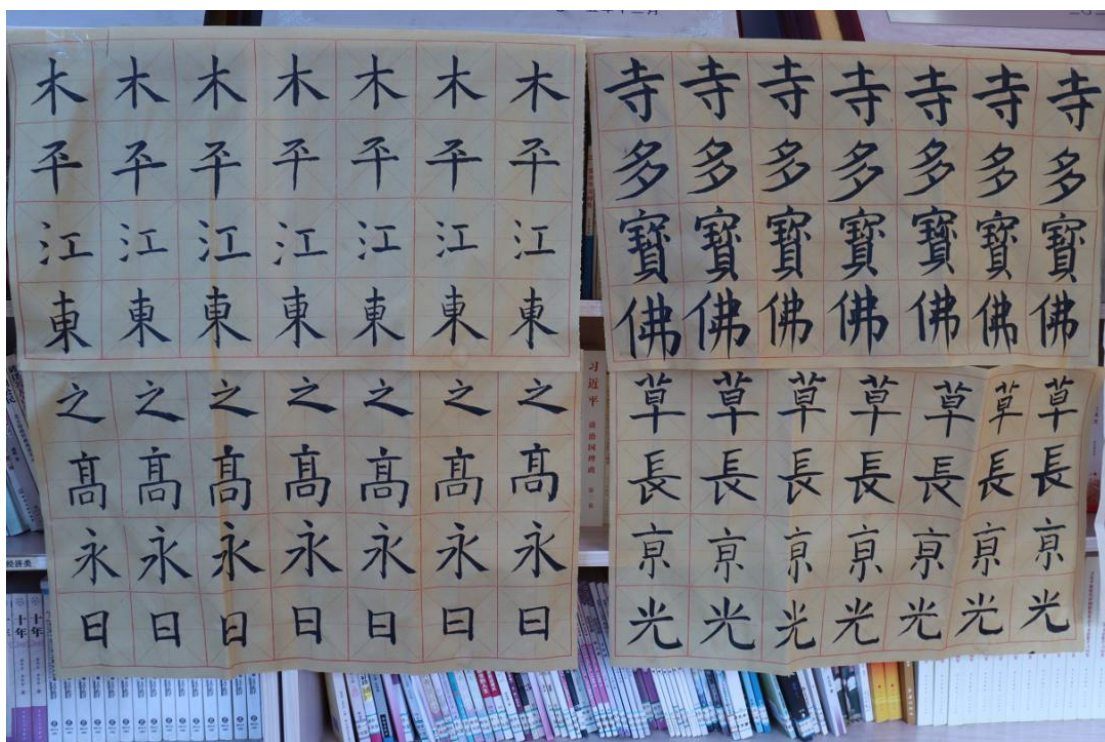 木木木木木木木
平平平平平平平
江江江江江江江
東東東東東東東
之之之之之之之
髙髙髙髙髙髙髙
永永永永永永永
日日日日日日日
寺寺寺寺寺寺寺
多多多多多多多
寶寶寶寶寶寶寶
佛佛佛佛佛佛佛
草草草草草草草
長長長長長長長
亰亰亰亰亰亰亰
光光光光光光光
习近平
谈治国理政
经济类
十年
十年